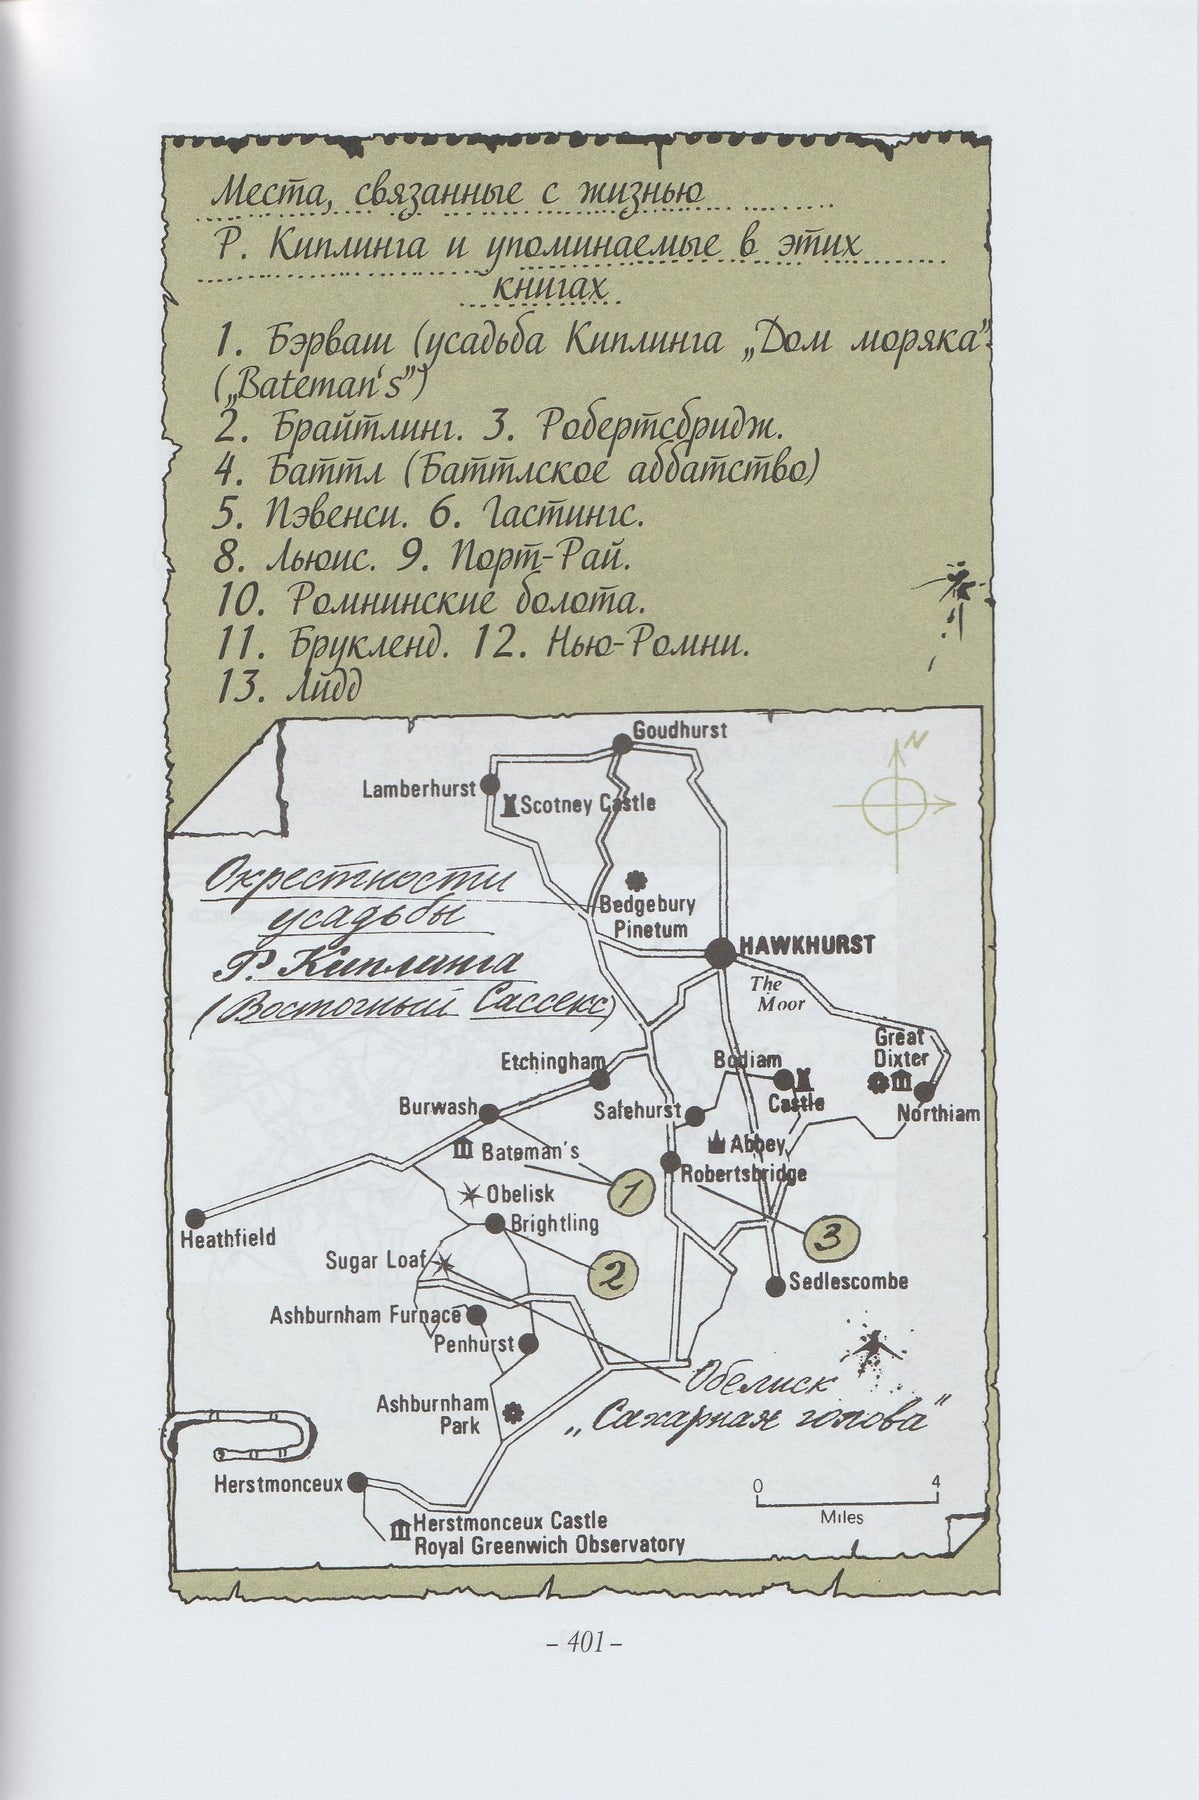 Места, связанные с жизнью
Р. Киплинга и упоминаемые в этих
книгах
1. Бэрваш (усадьба Киплинга „Дом моряка”
(„Bateman's”)
2. Брайтлинг. 3. Робертсбридж.
4. Баттл (Баттлское аббатство)
5. Пэвенси. 6. Гастингс.
8. Льюис. 9. Порт-Рай.
10. Ромнинские болота.
11. Брукленд. 12. Нью-Ромни.
13. Лидд
Goudhurst
N
Lamberhurst
Scotney Castle
Окрестности
усадьбы
Р. Киплинга
(Восточный Сассекс)
Bedgebury
Pinetum
HAWKHURST
The
Moor
Great
Dixter
Northiam
Etchingham
Bodiam
Castle
Burwash
Salehurst
Abbey
Bateman's
Robertsbridge
1
Obelisk
Brightling
3
Heathfield
Sugar Loaf
2
Sedlescombe
Ashburnham Furnace
Penhurst
Обелиск
„Сахарная голова”
Ashburnham
Park
Herstmonceux
0 4
Miles
Herstmonceux Castle
Royal Greenwich Observatory
– 401 –